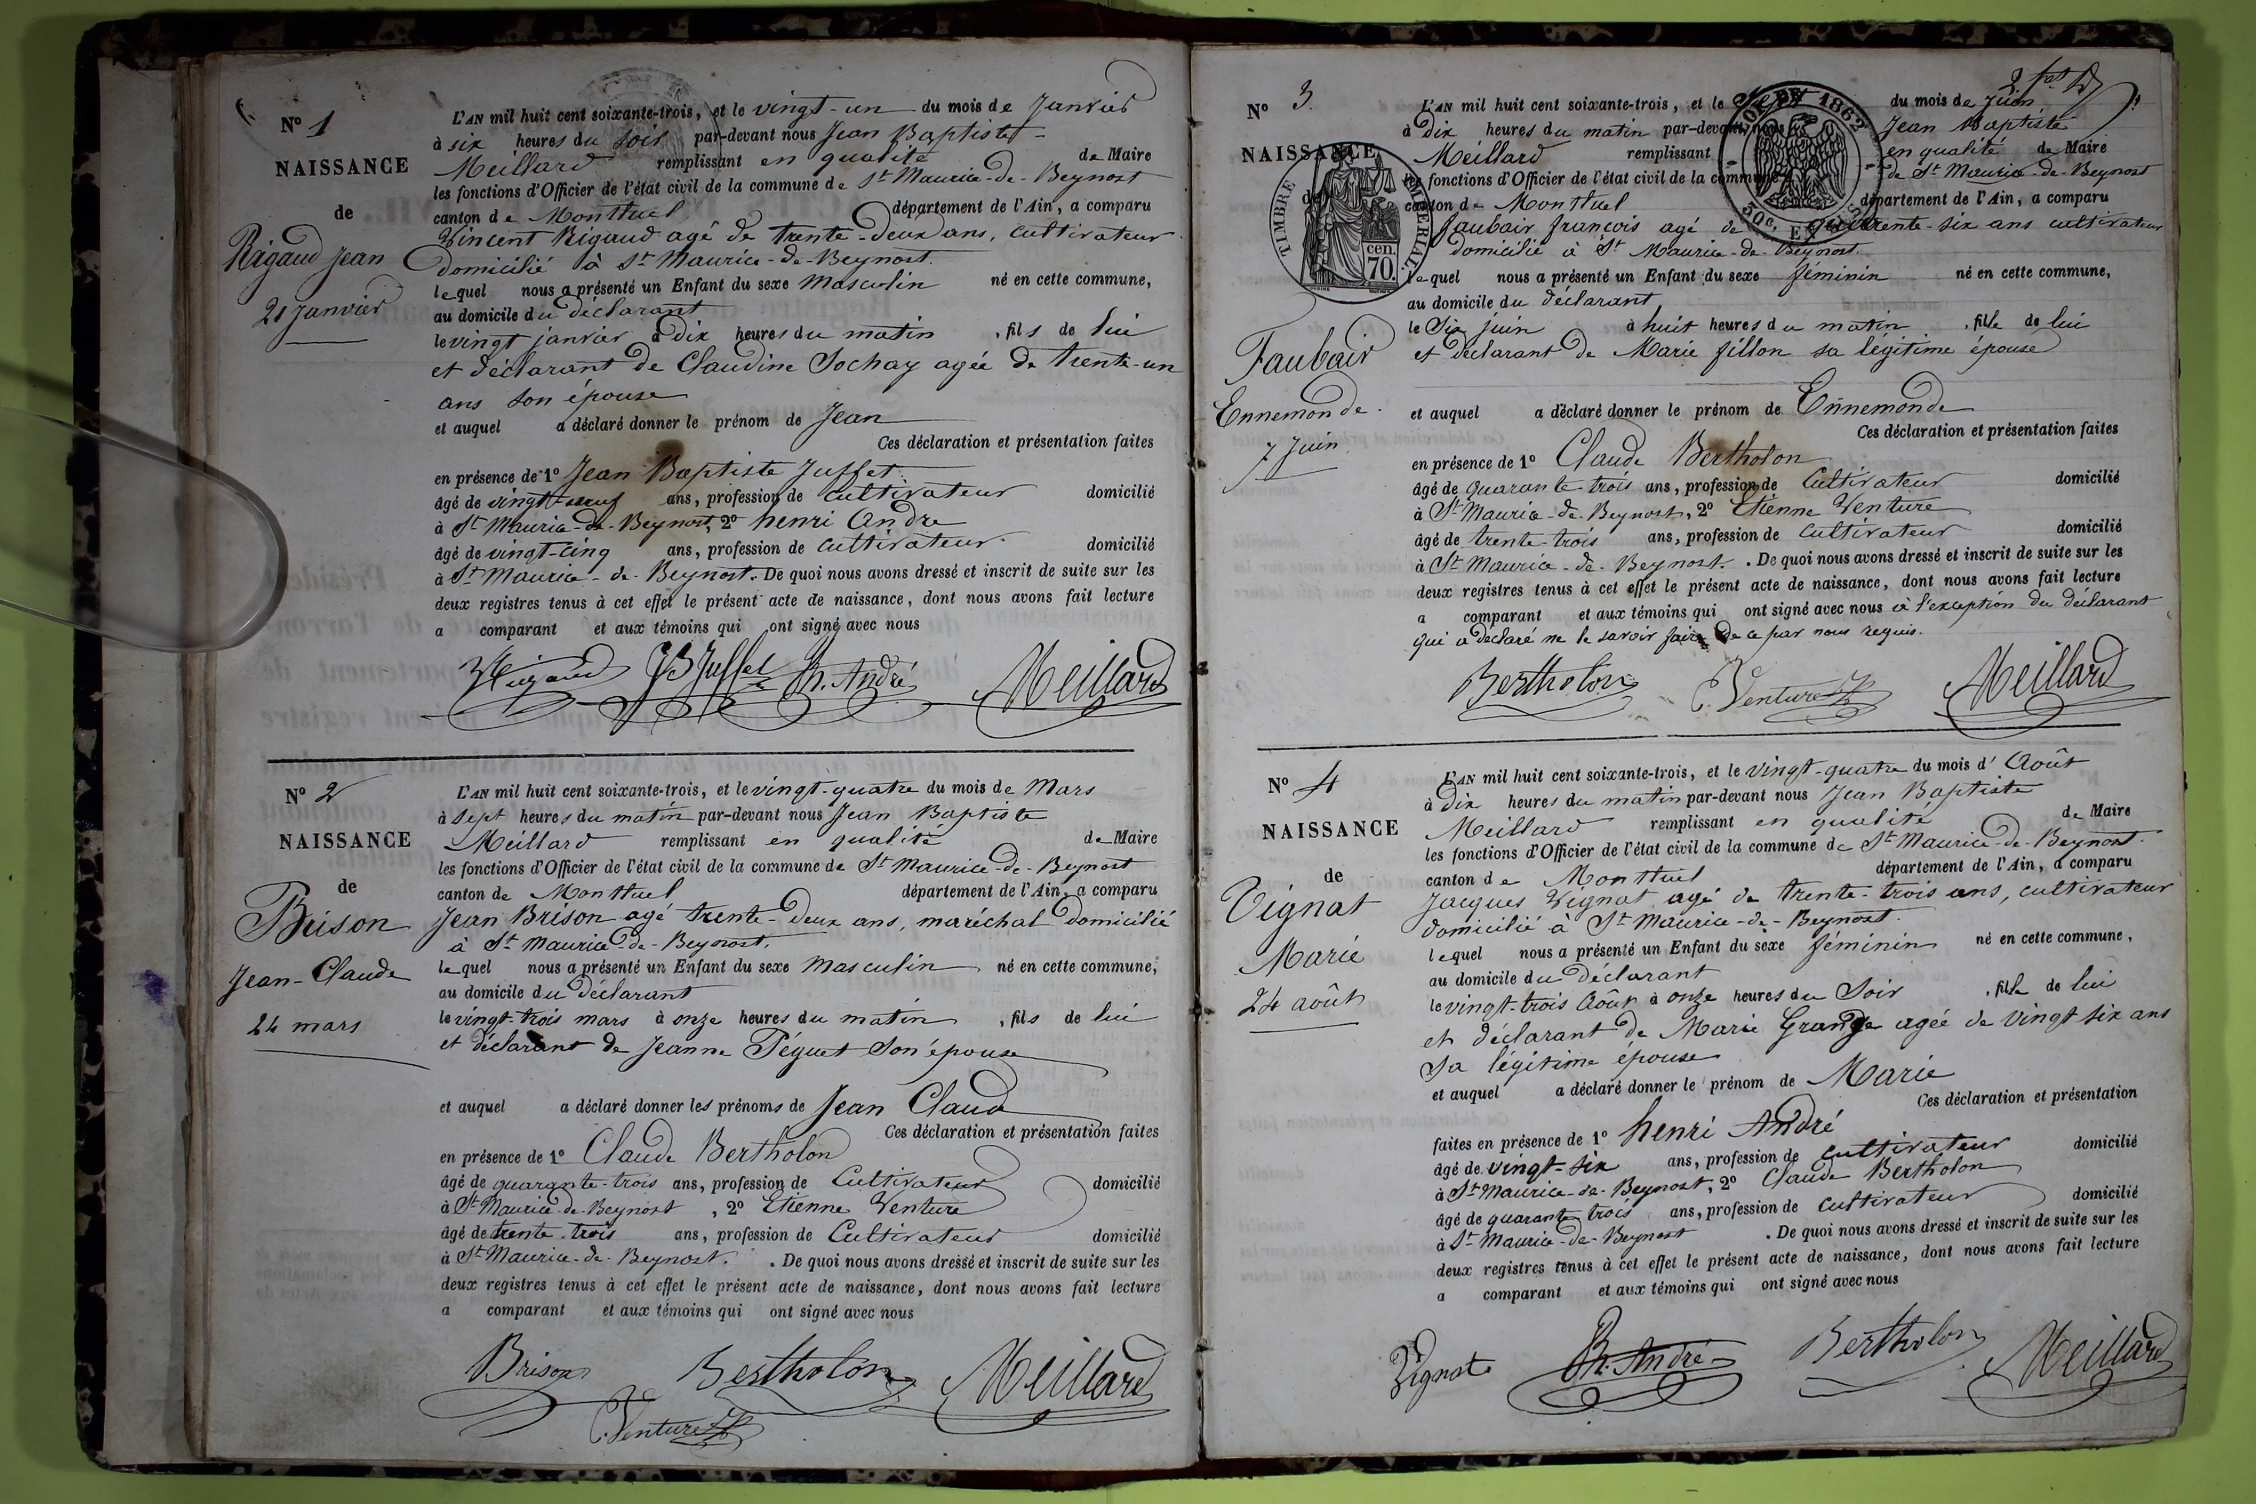 N° 1
NAISSANCE
de
Rigaud Jean
21 Janvier
L'AN mil huit cent soixante-trois, et le vingt-un du mois de Janvier
à six heures du soir par-devant nous Jean Baptiste
Meillard remplissant en qualité de Maire
les fonctions d'Officier de l'état civil de la commune de St Maurice-de-Beynost
canton de Montluel département de l'Ain, a comparu
Vincent Rigaud agé de trente-deux ans, cultivateur
domicilié à St Maurice-de-Beynost.
lequel nous a présenté un Enfant du sexe Masculin né en cette commune,
au domicile du déclarant
le vingt janvier à dix heures du matin, fils de lui
et déclarant de Claudine Sochay agée de trente-un
ans son épouse
et auquel a déclaré donner le prénom de Jean
Ces déclaration et présentation faites
en présence de 1° Jean Baptiste Juffet
âgé de vingt-neuf ans, profession de cultivateur domicilié
à St Maurice-de-Beynost, 2° henri André
âgé de vingt-cinq ans, profession de cultivateur domicilié
à St Maurice-de-Beynost. De quoi nous avons dressé et inscrit de suite sur les
deux registres tenus à cet effet le présent acte de naissance, dont nous avons fait lecture
a comparant et aux témoins qui ont signé avec nous
Rigaud JB Juffet h. André Meillard
N° 2
NAISSANCE
de
Brison
Jean-Claude
24 mars
L'AN mil huit cent soixante-trois, et le vingt-quatre du mois de Mars
à sept heures du matin par-devant nous Jean Baptiste
Meillard remplissant en qualité de Maire
les fonctions d'Officier de l'état civil de la commune de St Maurice-de-Beynost
canton de Montluel département de l'Ain, a comparu
Jean Brison agé trente-deux ans, maréchal domicilié
à St Maurice-de-Beynost.
lequel nous a présenté un Enfant du sexe Masculin né en cette commune,
au domicile du déclarant
le vingt-trois mars à onze heures du matin, fils de lui
et déclarant de Jeanne Péguet son épouse
et auquel a déclaré donner les prénoms de Jean Claud
Ces déclaration et présentation faites
en présence de 1° Claude Bertholon
âgé de quarante-trois ans, profession de Cultivateur domicilié
à St Maurice-de-Beynost, 2° Etienne Venture
âgé de trente-trois ans, profession de Cultivateur domicilié
à St Maurice-de-Beynost. . De quoi nous avons dressé et inscrit de suite sur les
deux registres tenus à cet effet le présent acte de naissance, dont nous avons fait lecture
a comparant et aux témoins qui ont signé avec nous
Brison Bertholon Meillard
Venture
N° 3
NAISSANCE
Faubair
Ennemonde
7 Juin
TIMBRE IMPÉRIAL
70 cen.
1862
50c. EN SUS
L'AN mil huit cent soixante-trois, et le sept du mois de Juin
à dix heures du matin par-devant nous Jean Baptiste
Meillard remplissant en qualité de Maire
les fonctions d'Officier de l'état civil de la commune de St Maurice-de-Beynost
canton de Montluel département de l'Ain, a comparu
faubair françois agé de quarante-six ans cultivateur
domicilié à St Maurice-de-Beynost.
lequel nous a présenté un Enfant du sexe féminin né en cette commune,
au domicile du déclarant
le Six juin à huit heures du matin, fille de lui
et déclarant de Marie fillon sa légitime épouse
et auquel a déclaré donner le prénom de Ennemonde
Ces déclaration et présentation faites
en présence de 1° Claude Bertholon
âgé de quarante-trois ans, profession de Cultivateur domicilié
à St Maurice-de-Beynost, 2° Etienne Venture
âgé de trente-trois ans, profession de cultivateur domicilié
à St Maurice-de-Beynost. . De quoi nous avons dressé et inscrit de suite sur les
deux registres tenus à cet effet le présent acte de naissance, dont nous avons fait lecture
a comparant et aux témoins qui ont signé avec nous à l'exception du déclarant
qui a déclaré ne le savoir faire de ce par nous requis.
Bertholon Venture Meillard
N° 4
NAISSANCE
de
Vignat
Marie
24 août
L'AN mil huit cent soixante-trois, et le vingt-quatre du mois d'Août
à dix heures du matin par-devant nous Jean Baptiste
Meillard remplissant en qualité de Maire
les fonctions d'Officier de l'état civil de la commune de St Maurice-de-Beynost.
canton de Montluel département de l'Ain, a comparu
Jacques Vignat agé de trente-trois ans, cultivateur
domicilié à St Maurice-de-Beynost.
lequel nous a présenté un Enfant du sexe féminin né en cette commune,
au domicile du déclarant
le vingt-trois Août à onze heures du Soir, fille de lui
et déclarant de Marie Grange agée de vingt six ans
sa légitime épouse
et auquel a déclaré donner le prénom de Marie
Ces déclaration et présentation
faites en présence de 1° henri André
âgé de vingt-six ans, profession de cultivateur domicilié
à St Maurice-de-Beynost, 2° Claude Bertholon
âgé de quarante trois ans, profession de cultivateur domicilié
à St Maurice-de-Beynost . De quoi nous avons dressé et inscrit de suite sur les
deux registres tenus à cet effet le présent acte de naissance, dont nous avons fait lecture
a comparant et aux témoins qui ont signé avec nous
Vignat h. André Bertholon Meillard